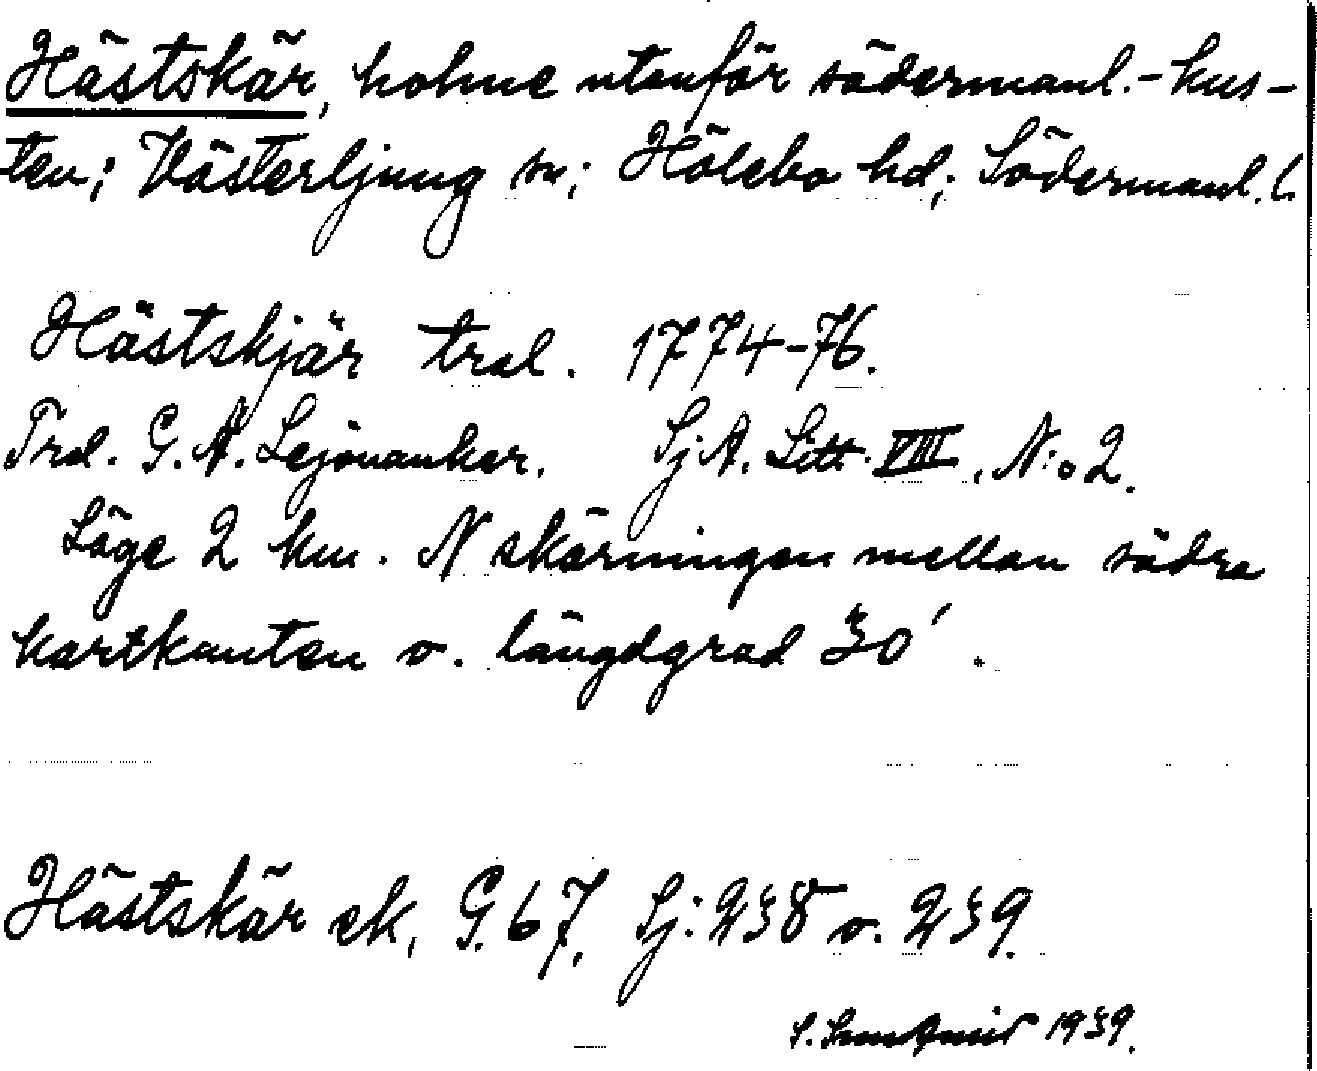 Hästskär, holme utanför södermanl.-kus-
ten; Västerljung sn; Hölebo hd; Södermanl. l.
Hästskjär tral. 1774-76.
Trol. G. A. Lejonanker. Sj. A. Litt. VIII. N:o 2.
Läge 2 km. N skärningen mellan södra
kartkanten o. längdgrad 30'.
Hästskär ek, G. 67, Sj: 238 o. 239.
1939.